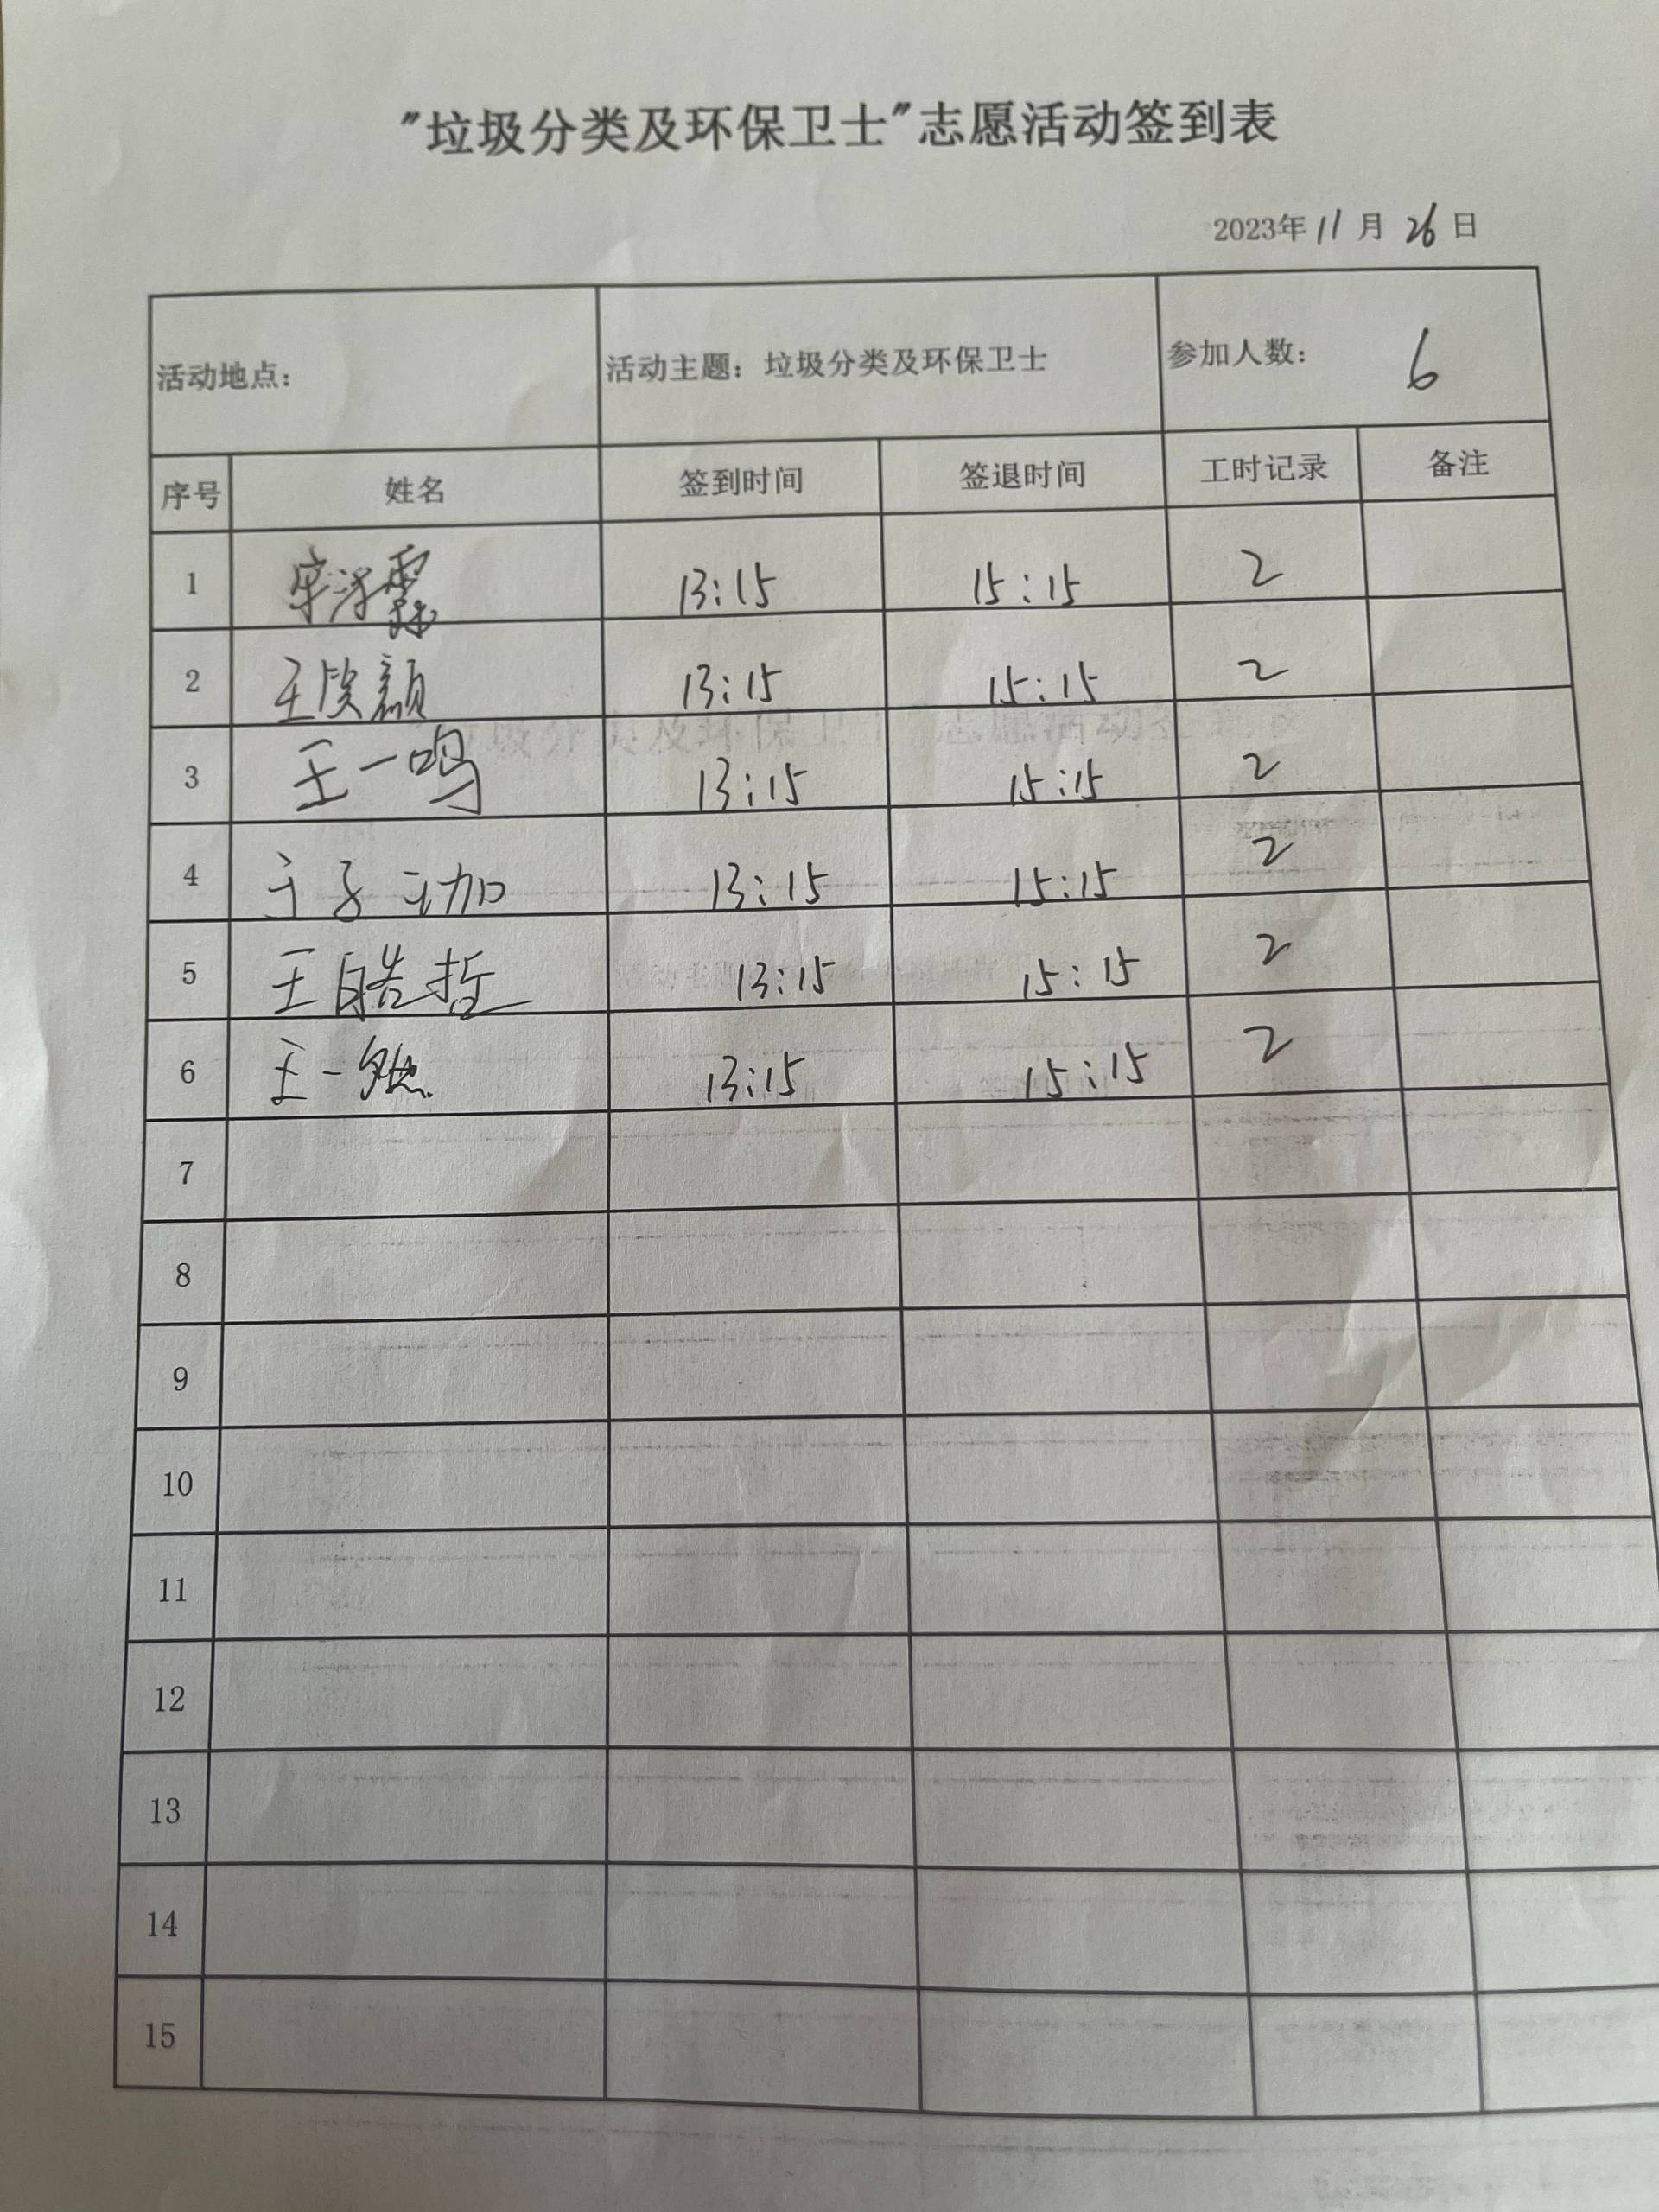 "垃圾分类及环保卫士"志愿活动签到表
2023年11月26日
活动地点： 活动主题：垃圾分类及环保卫士 参加人数： 6
序号 姓名 签到时间 签退时间 工时记录 备注
1 13:15 15:15 2
2 王 颜 13:15 15:15 2
3 王一鸣 13:15 15:15 2
4 13:15 15:15 2
5 王皓哲 13:15 15:15 2
6 王一 13:15 15:15 2
7
8
9
10
11
12
13
14
15